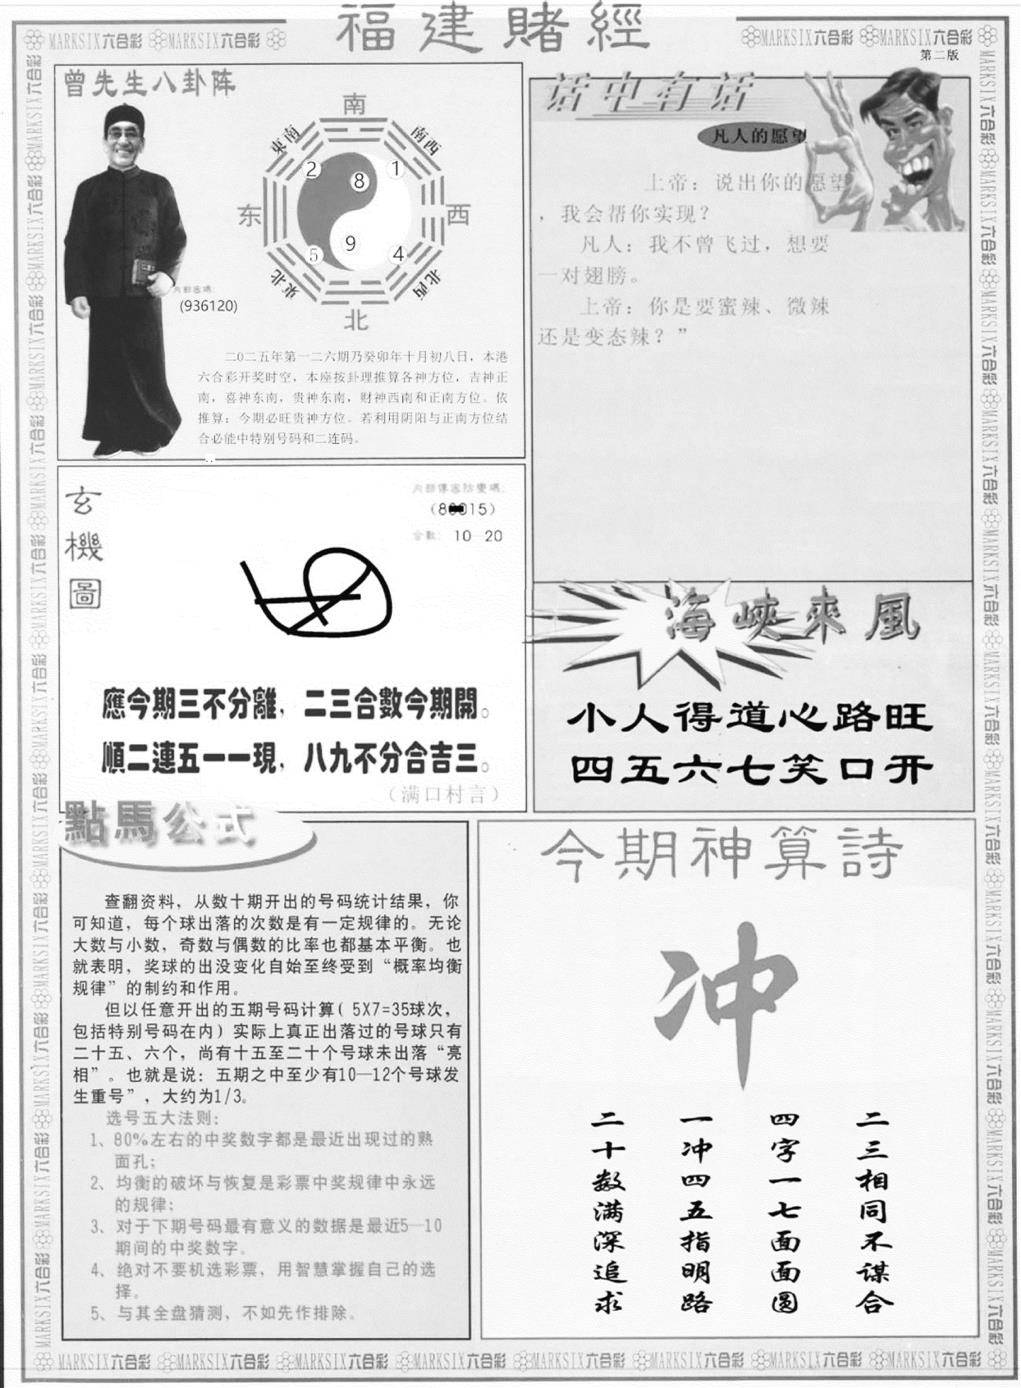 福建賭經
MARKSIX六合彩 MARKSIX六合彩
MARKSIX六合彩 MARKSIX六合彩
第二版
曾先生八卦阵
南
東南
南西
2
8
1
东
西
5
9
4
東北
北西
北
(936120)
二0二五年第一二六期乃癸卯年十月初八日，本港
六合彩开奖时空，本座按卦理推算各神方位，吉神正
南，喜神东南，贵神东南，财神西南和正南方位。依
推算：今期必旺贵神方位。若利用阴阳与正南方位结
合必能中特别号码和二连码。
话中有话
凡人的愿望
上帝：说出你的愿望
，我会帮你实现？
凡人：我不曾飞过，想要
一对翅膀。
上帝：你是要蜜辣、微辣
还是变态辣？”
玄機圖
合數：10—20
應今期三不分離，二三合數今期開。
順二連五一一現，八九不分合吉三。
（满口村言）
海峽來風
小人得道心路旺
四五六七笑口开
點馬公式
查翻资料，从数十期开出的号码统计结果，你
可知道，每个球出落的次数是有一定规律的。无论
大数与小数，奇数与偶数的比率也都基本平衡。也
就表明，奖球的出没变化自始至终受到“概率均衡
规律”的制约和作用。
但以任意开出的五期号码计算( 5X7=35球次，
包括特别号码在内）实际上真正出落过的号球只有
二十五、六个，尚有十五至二十个号球未出落“亮
相”。也就是说：五期之中至少有10—12个号球发
生重号”，大约为1/3。
选号五大法则：
1、80%左右的中奖数字都是最近出现过的熟
面孔；
2、均衡的破坏与恢复是彩票中奖规律中永远
的规律；
3、对于下期号码最有意义的数据是最近5—10
期间的中奖数字。
4、绝对不要机选彩票，用智慧掌握自己的选
择。
5、与其全盘猜测，不如先作排除。
今期神算詩
冲
二三相同不谋合
四字一七面面圆
一冲四五指明路
二十数满深追求
MARKSIX六合彩 MARKSIX六合彩 MARKSIX六合彩 MARKSIX六合彩 MARKSIX六合彩 MARKSIX六合彩 MARKSIX六合彩 MARKSIX六合彩